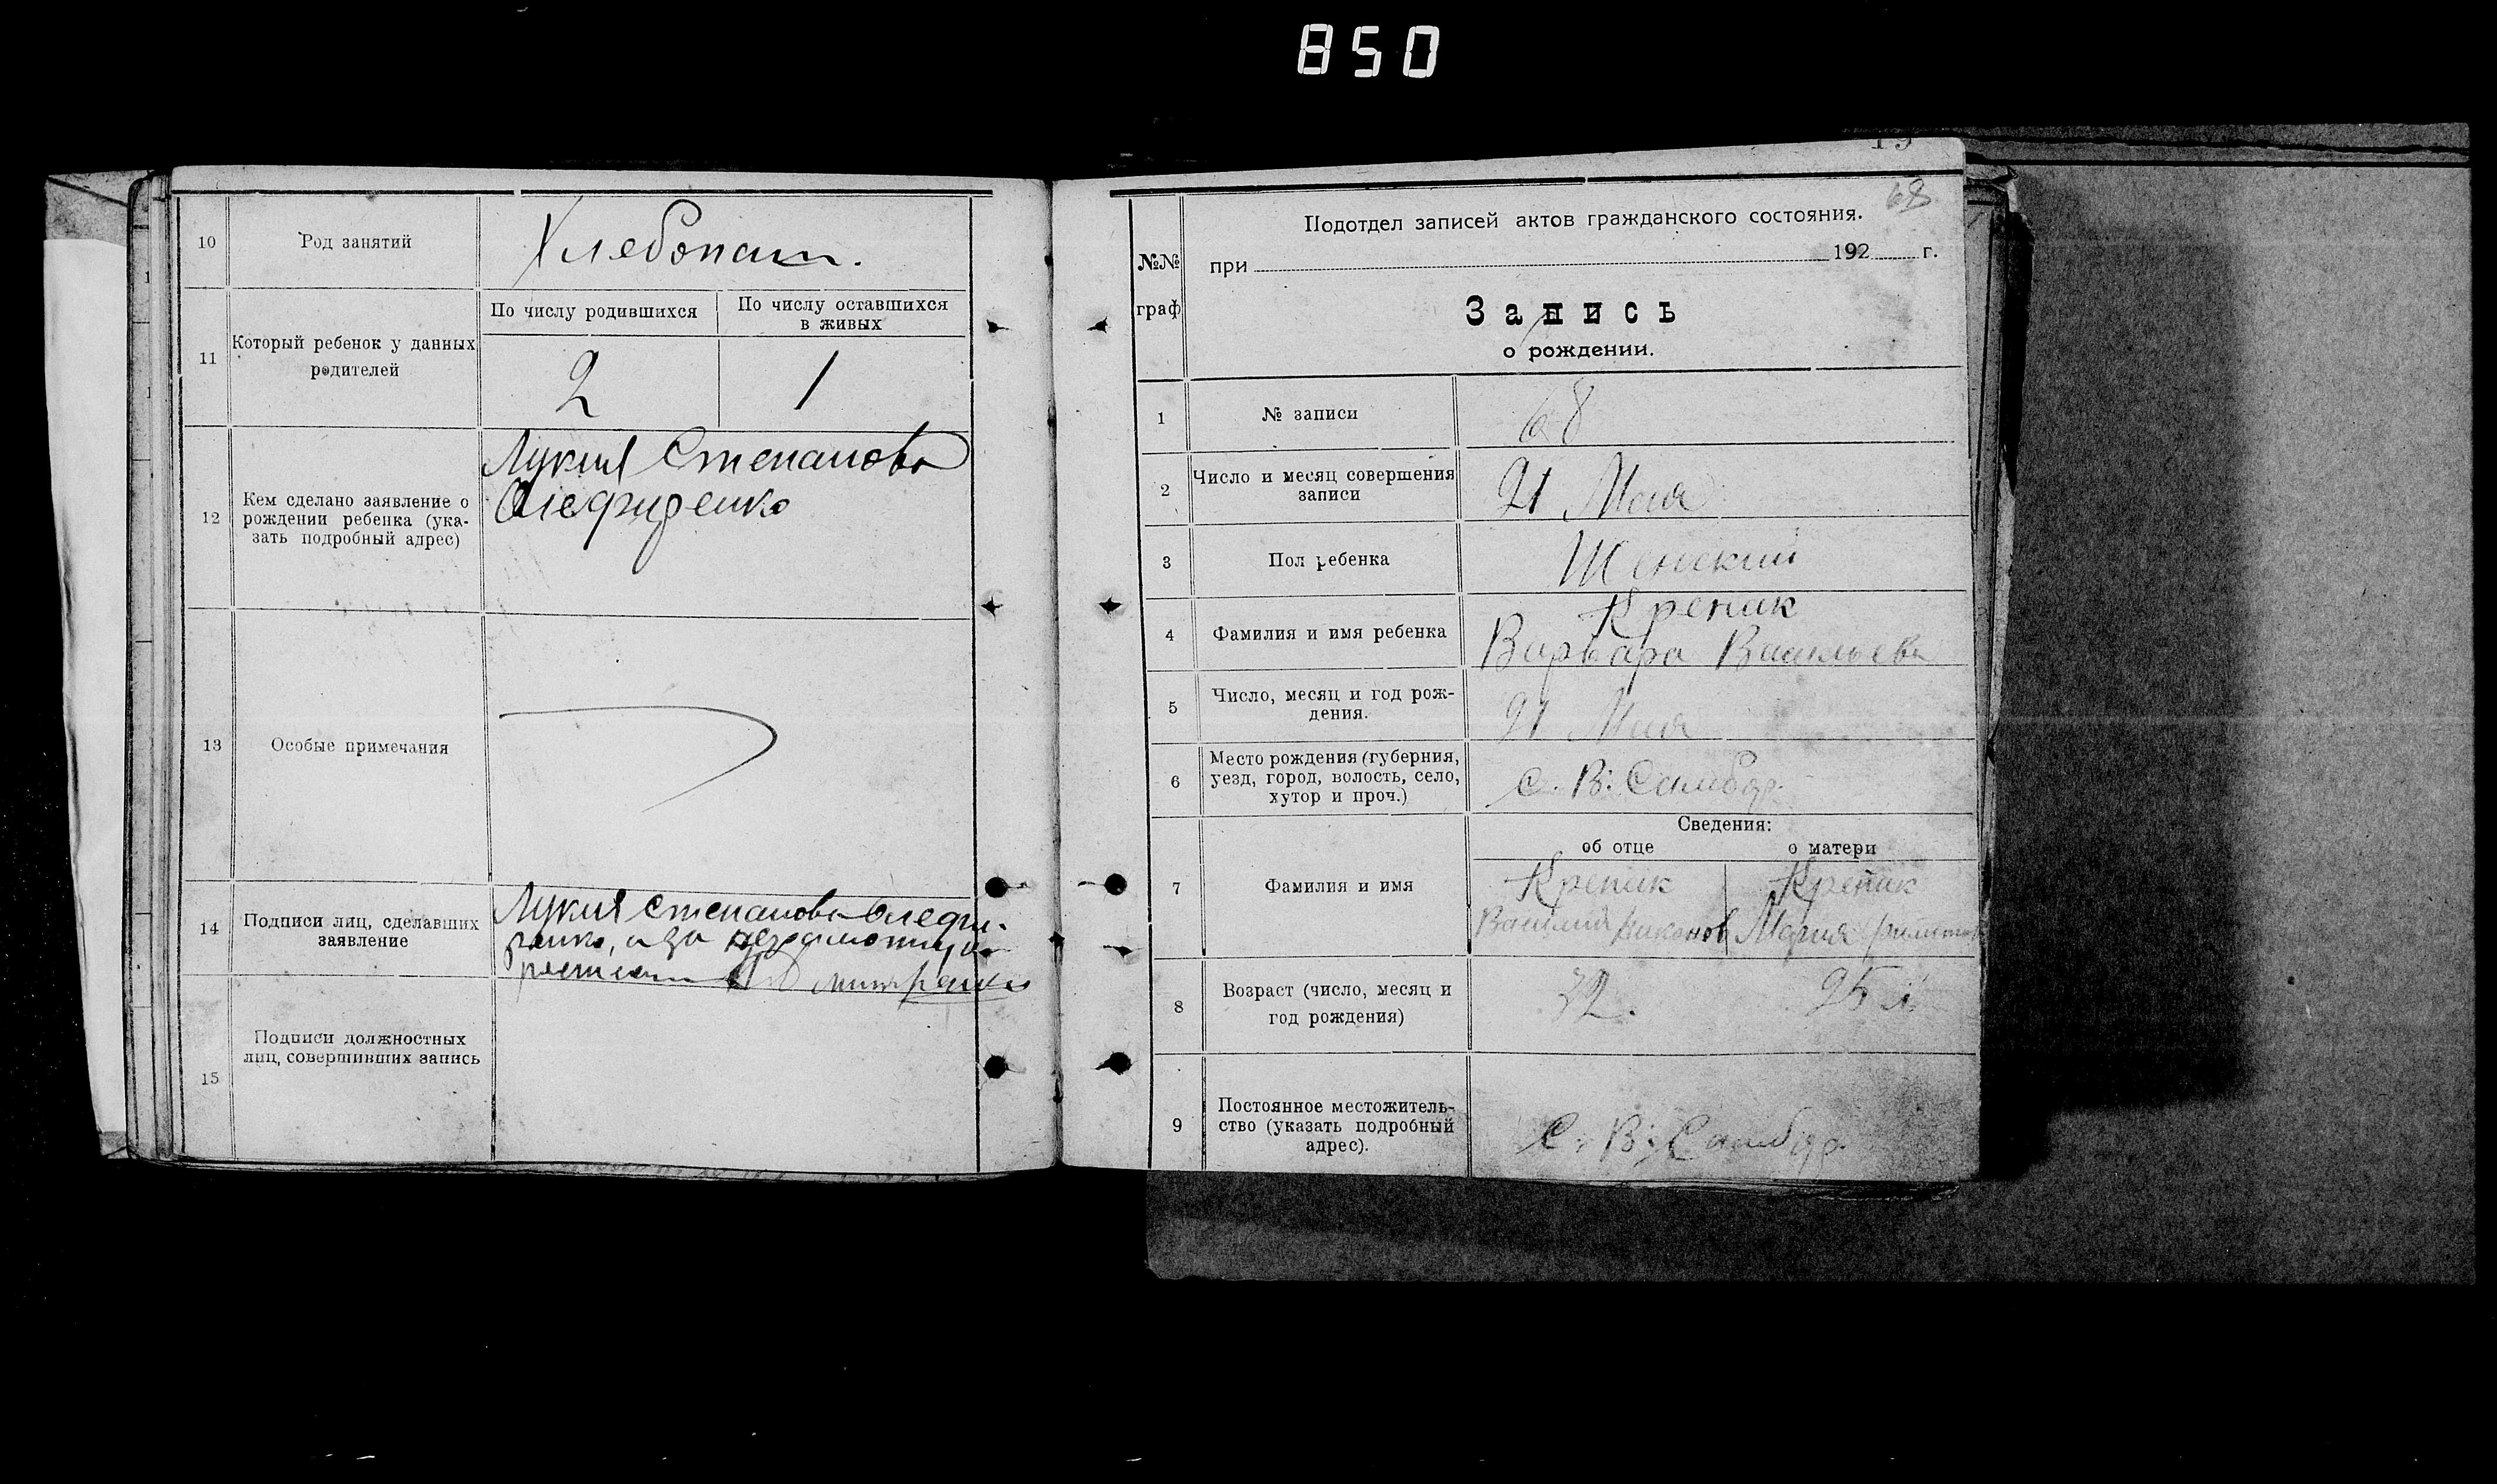 850
10
Род занятий
Хлебопаш.
11
Который ребенок у данных
родителей
По числу родившихся
По числу оставшихся
в живых
2
1
12
Кем сделано заявление о
рождении ребенка (ука-
зать подробный адрес)
Лукия Степанова
Олефиренко
13
Особые примечания
14
Подписи лиц, сделавших
заявление
Лукия Степанова Олефи-
ренко, а за
15
Подписи должностных
лиц, совершивших запись
19
68
№№
граф
Подотдел записей актов гражданского состояния.
при 192 г.
Запись
о рождении.
1
№ записи
68
2
Число и месяц совершения
записи
21 Мая
3
Пол ребенка
Женский
4
Фамилия и имя ребенка
Крепик
Варвара Васильева
5
Число, месяц и год рож-
дения.
21 Мая
6
Место рождения (губерния,
уезд, город, волость, село,
хутор и проч.)
с. В. Самбор.
Сведения:
об отце
о матери
7
Фамилия и имя
Крепик
Василий Никонов
Крепик
Мария
8
Возраст (число, месяц и
год рождения)
32.
25 л.
9
Постоянное местожитель-
ство (указать подробный
адрес).
С. В. Самбор.